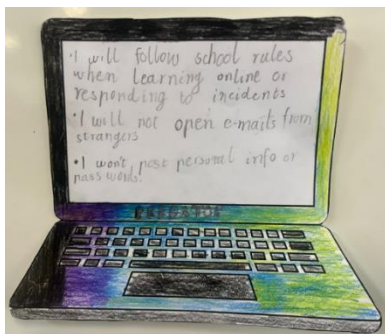 • I will follow school rules
when learning online or
responding to incidents
• I will not open e-mails from
strangers
• I won't post personal info or
pass words.